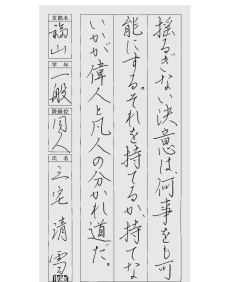 揺るぎない決意は、何事をも可
能にする。それを持てるか、持てな
いかが偉人と凡人の分かれ道だ。
支部名
福山
学年
一般
段級位
同人
氏名
三宅清雪